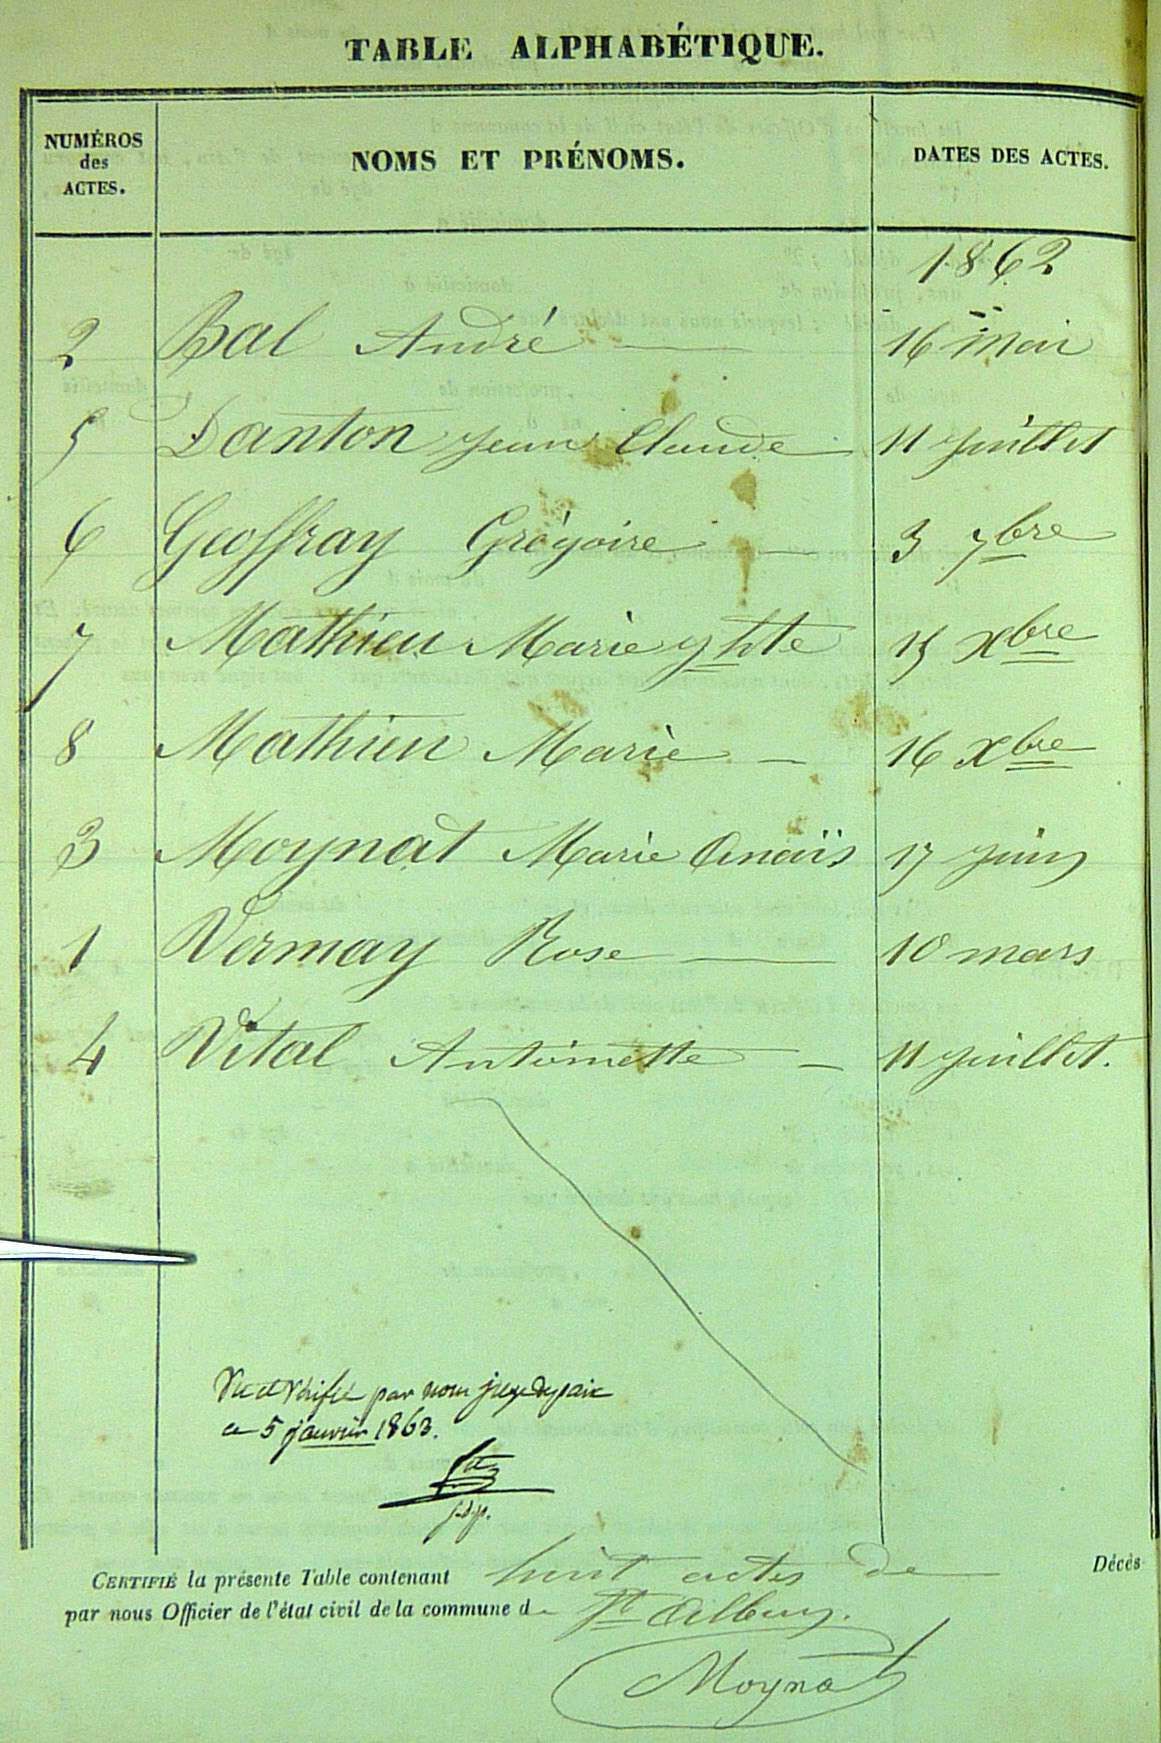 TABLE ALPHABÉTIQUE.
NUMÉROS des ACTES. NOMS ET PRÉNOMS. DATES DES ACTES.
1862
2 Bal André 16 Mai
5 Danton Jean Claude 11 juillet
6 Geoffray Grégoire 3 7bre
7 Mathieu Marie yhte 15 Xbre
8 Mathieu Marie 16 Xbre
3 Moynat Marie Anaïs 17 juin
1 Vernay Rose 10 mars
4 Vital Antoinette 11 juillet.
Vu et Vérifié par nous juge de paix
ce 5 janvier 1863.
j. d. p.
CERTIFIÉ la présente Table contenant huit actes de Décès
par nous Officier de l'état civil de la commune de St Alban.
Moynat